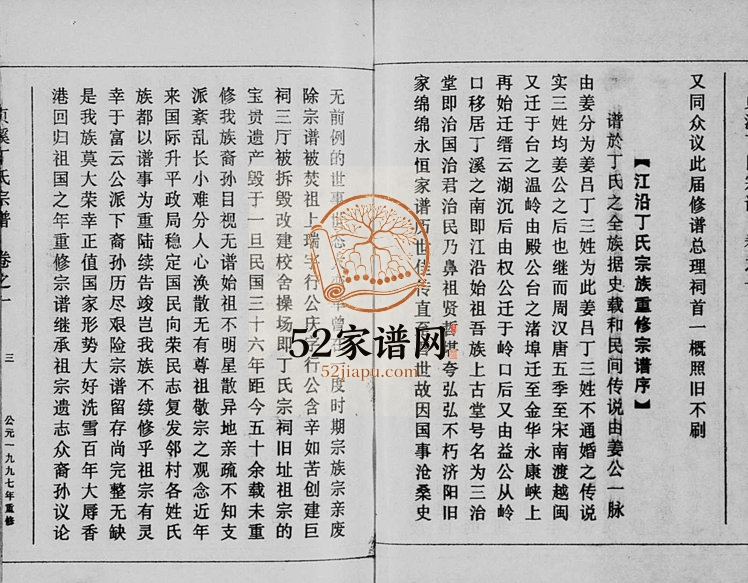 又同众议此届修谱总理祠首一概照旧不刷
【江沿丁氏宗族重修宗谱序】
谱於丁氏之全族据史载和民间传说由姜公一脉
由姜分为姜吕丁三姓为此姜吕丁三姓不通婚之传说
实三姓均姜公之后也继而周汉唐五季至宋南渡越闽
又迁于台之温岭由殿公台之渚埠迁至金华永康峡上
再始迁缙云湖沉后由权公迁于岭口后又由益公从岭
口移居丁溪之南即江沿始祖吾族上古堂号名为三治
堂即治国治君治民乃鼻祖贤哲堪夸弘弘不朽济阳旧
家绵绵永恒家谱历世佳传直至晋世故因国事沧桑史
无前例的世事 度时期宗族宗亲废
除宗谱被焚祖上瑞宇行公庆宗行公含辛如苦创建巨
祠三厅被拆毁改建校舍操场即丁氏宗祠旧址祖宗的
宝贵遗产毁于一旦民国三十六年距今五十余载未重
修我族裔孙目视无谱始祖不明星散异地亲疏不知支
派紊乱长小难分人心涣散无有尊祖敬宗之观念近年
来国际升平政局稳定国民向荣民志复发邻村各姓氏
族都以谱事为重陆续告竣岂我族不续修乎祖宗有灵
幸于富云公派下裔孙历尽艰险宗谱留存尚完整无缺
是我族莫大荣幸正值国家形势大好洗雪百年大辱香
港回归祖国之年重修宗谱继承祖宗遗志众裔孙议论
丁氏宗谱 卷之一
三
公元一九九七年重修
52家谱网
52jiapu.com